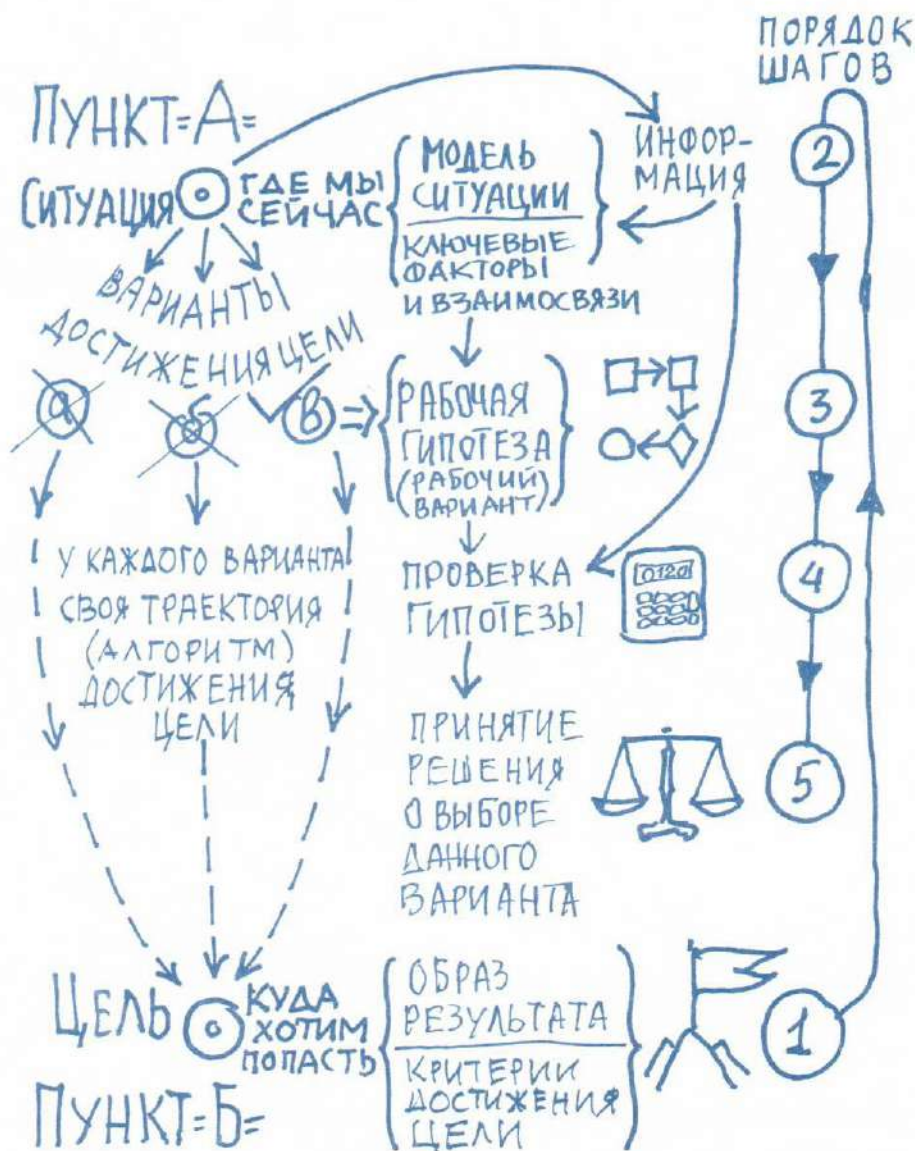 ПОРЯДОК
ШАГОВ
ПУНКТ=А=
СИТУАЦИЯ
ГДЕ МЫ
СЕЙЧАС
МОДЕЛЬ
СИТУАЦИИ
КЛЮЧЕВЫЕ
ФАКТОРЫ
И ВЗАИМОСВЯЗИ
ИНФОР-
МАЦИЯ
2
ВАРИАНТЫ
ДОСТИЖЕНИЯ ЦЕЛИ
а
б
В
РАБОЧАЯ
ГИПОТЕЗА
(РАБОЧИЙ)
(ВАРИАНТ)
3
У КАЖДОГО ВАРИАНТА
СВОЯ ТРАЕКТОРИЯ
(АЛГОРИТМ)
ДОСТИЖЕНИЯ
ЦЕЛИ
ПРОВЕРКА
ГИПОТЕЗЫ
0120
4
ПРИНЯТИЕ
РЕШЕНИЯ
О ВЫБОРЕ
ДАННОГО
ВАРИАНТА
5
ЦЕЛЬ
КУДА
ХОТИМ
ПОПАСТЬ
ОБРАЗ
РЕЗУЛЬТАТА
КРИТЕРИИ
ДОСТИЖЕНИЯ
ЦЕЛИ
1
ПУНКТ=Б=